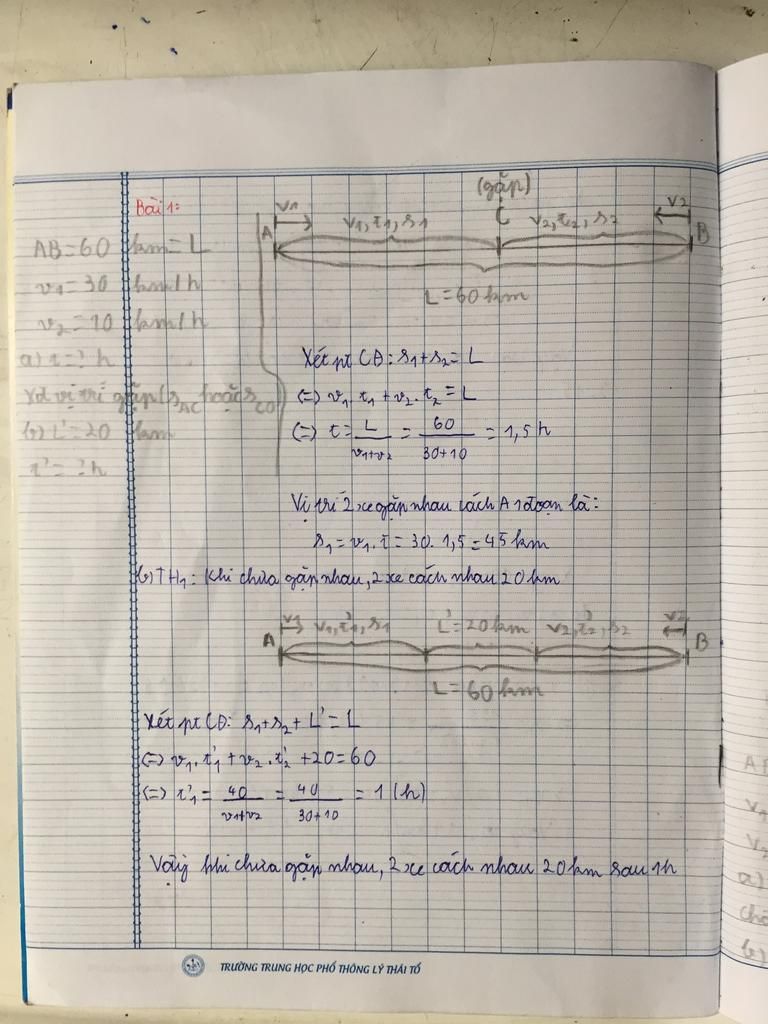 Bài 1:
AB=60 km=L
v1=30 km/h
v2=10 km/h
a) t=? h
vị trí gặp (sAC hoặc sCB)
b) L'=20 km
t'=? h
(gặp)
v1 v2
A v1,t1,s1 C v2,t2,s2 B
L=60km
Xét pt CĐ: s1+s2=L
(=) v1.t1+v2.t2=L
(=) t=L/(v1+v2) = 60/(30+10) = 1,5 h
Vị trí 2 xe gặp nhau cách A 1 đoạn là:
s1=v1.t=30.1,5=45 km
b) TH1: Khi chưa gặp nhau, 2 xe cách nhau 20 km
v1 v2
A v1,t'1,s1 L'=20km v2,t'2,s2 B
L=60 km
Xét pt CĐ: s1+s2+L'=L
(=) v1.t'1+v2.t'2+20=60
(=) t'1=40/(v1+v2) = 40/(30+10) = 1 (h)
Vậy khi chưa gặp nhau, 2 xe cách nhau 20km sau 1h
TRƯỜNG TRUNG HỌC PHỔ THÔNG LÝ THÁI TỔ
a)
b)